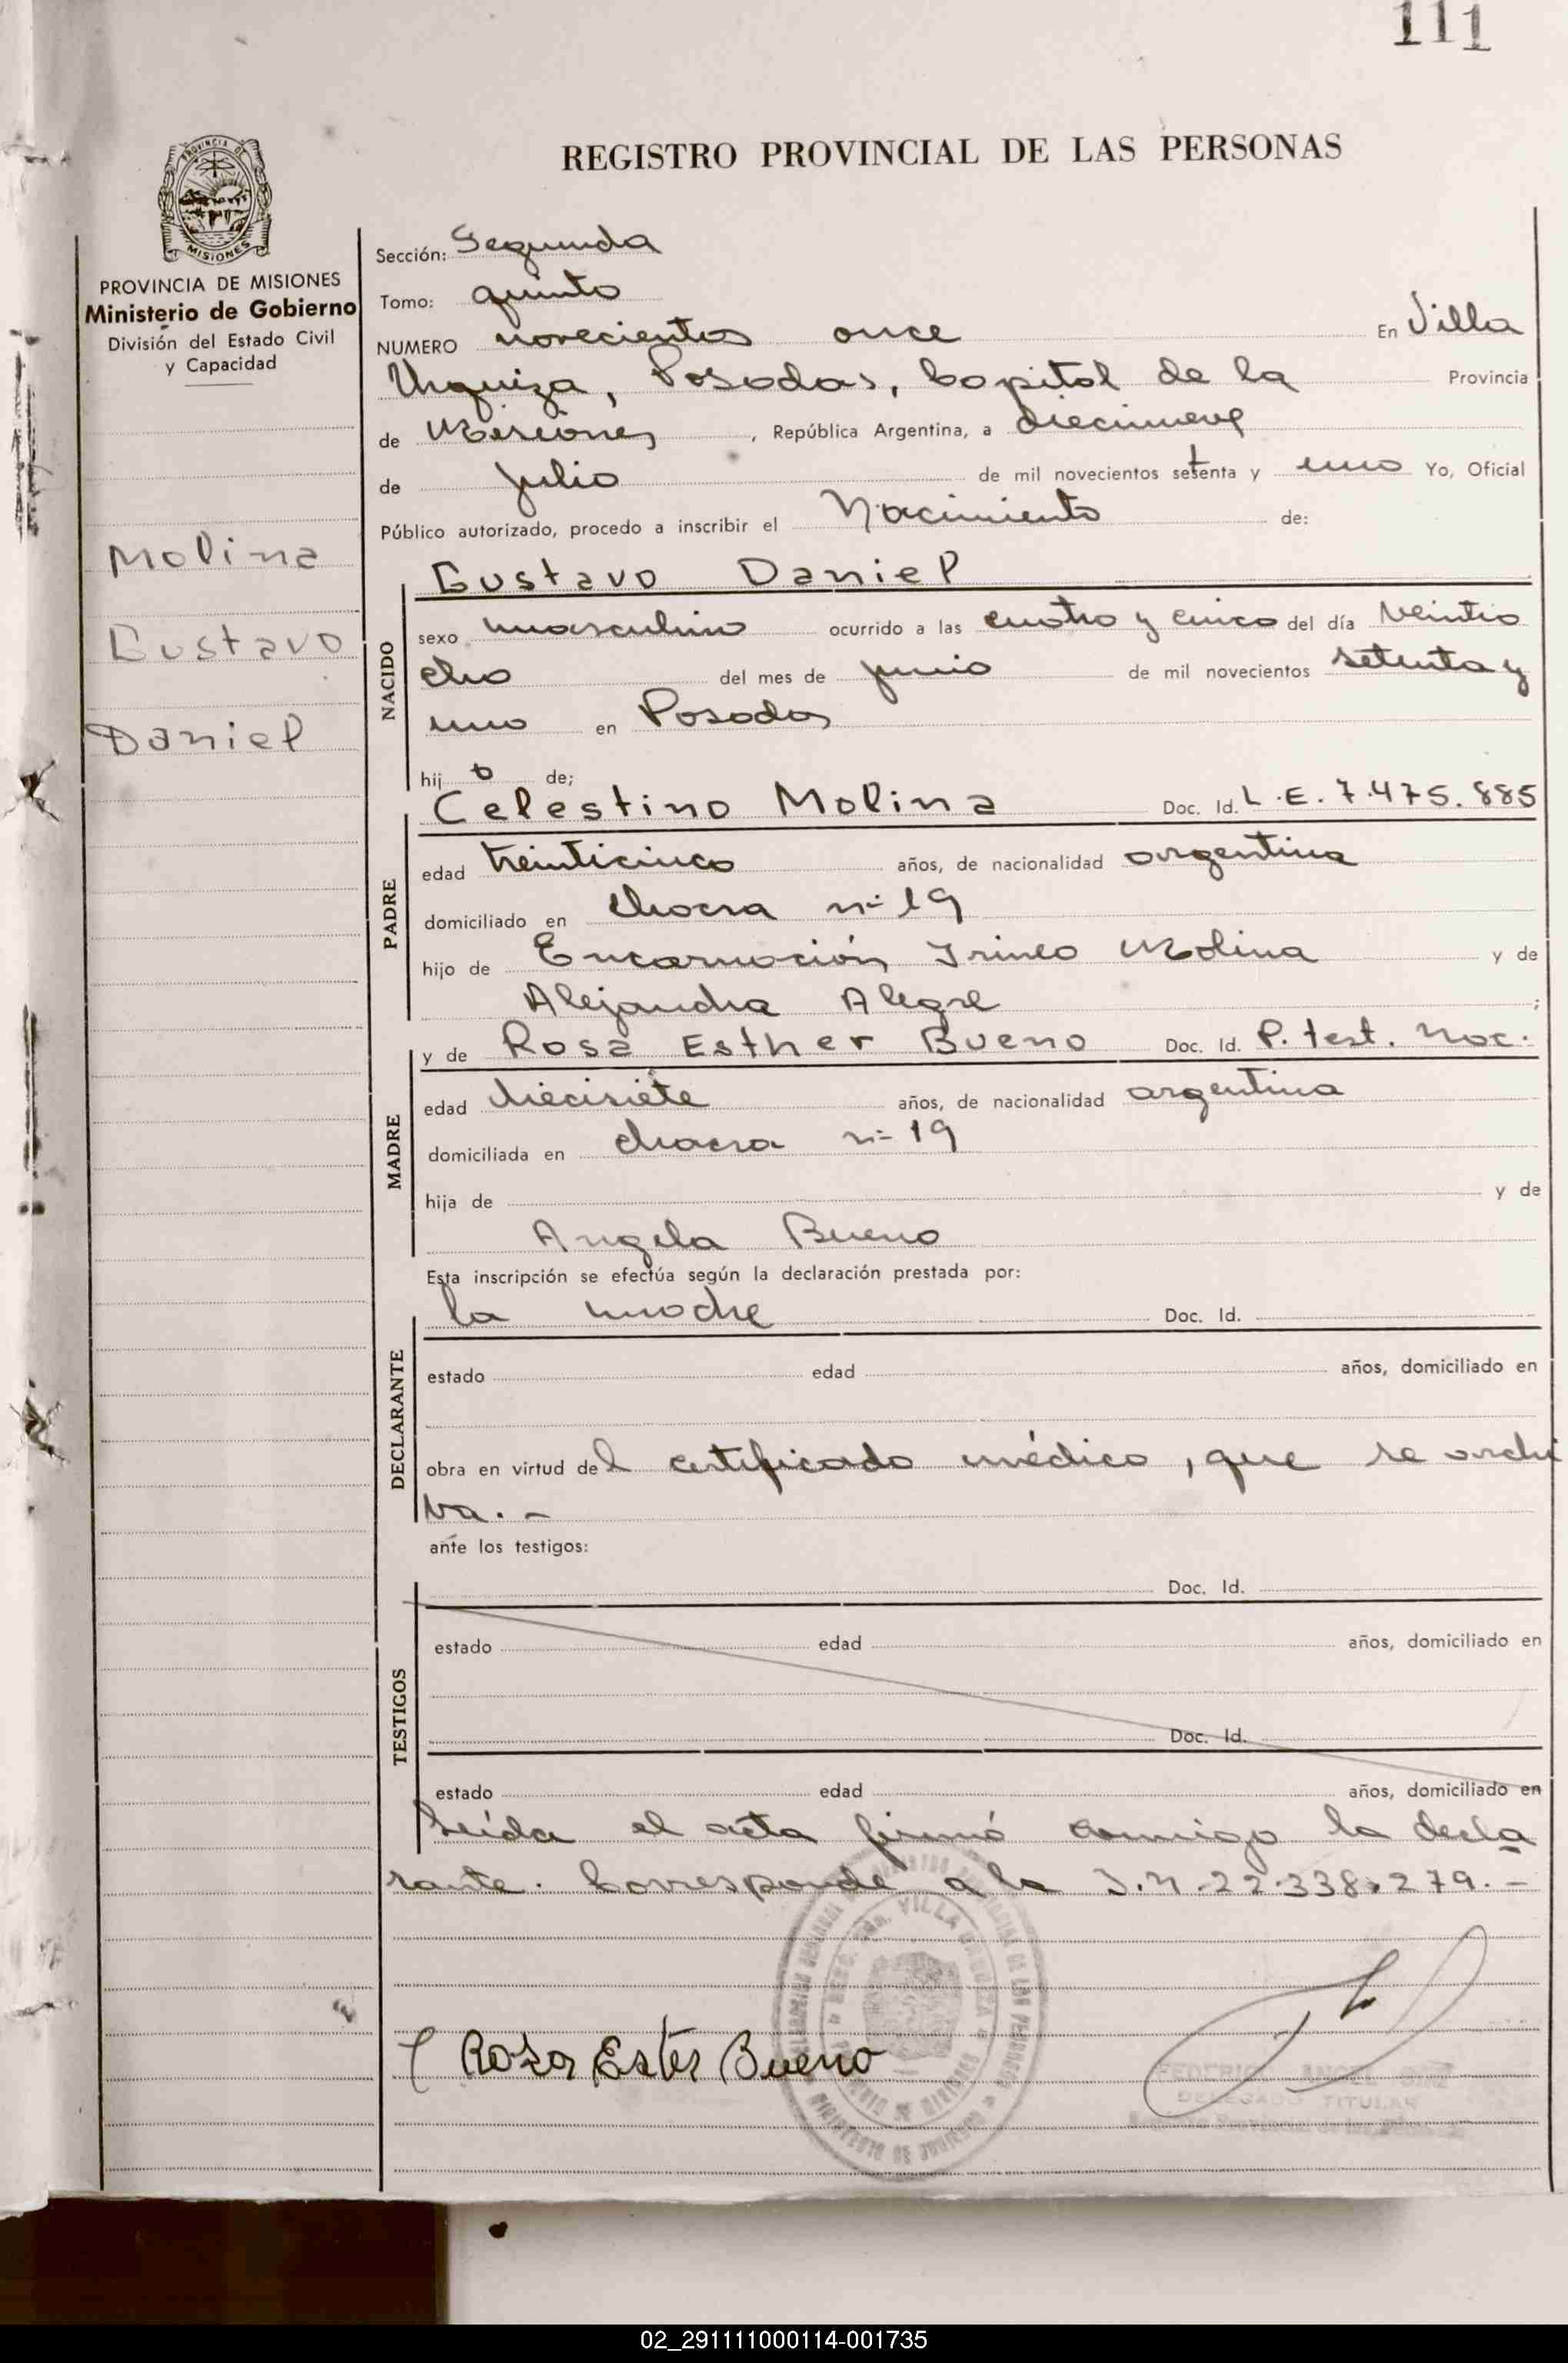 111
REGISTRO PROVINCIAL DE LAS PERSONAS
PROVINCIA DE MISIONES
PROVINCIA DE MISIONES
Ministerio de Gobierno
División del Estado Civil
y Capacidad
Molina
Gustavo
Daniel
Sección: Segunda
Tomo: quinto
NUMERO novecientos once En Villa
Urquiza, Posadas, Capital de la Provincia
de Misiones, República Argentina, a diecinueve
de julio de mil novecientos setenta y uno Yo, Oficial
Público autorizado, procedo a inscribir el Nacimiento de:
NACIDO
Gustavo Daniel
sexo masculino ocurrido a las cuatro y cinco del día veintio
cho del mes de junio de mil novecientos setenta y
uno en Posadas
hij o de;
PADRE
Celestino Molina Doc. Id. L.E. 7.475.885
edad treinticinco años, de nacionalidad argentina
domiciliado en chacra nº 19
hijo de Encarnación Irineo Molina y de
Alejandra Alegre ;
MADRE
y de Rosa Esther Bueno Doc. Id. P. test. nac.
edad diecisiete años, de nacionalidad argentina
domiciliada en chacra nº 19
hija de y de
Angela Bueno
Esta inscripción se efectúa según la declaración prestada por:
DECLARANTE
la madre Doc. Id.
estado edad años, domiciliado en
obra en virtud del certificado médico, que se archi
va. -
ante los testigos:
TESTIGOS
Doc. Id.
estado edad años, domiciliado en
Doc. Id.
estado edad años, domiciliado en
Leída el acta firmó conmigo la decla
rante. Corresponde a la I.N. 22.338.279. -
Rosa Ester Bueno
VILLA URQUIZA
FEDERICO ANGEL
DELEGADO TITULAR
02_291111000114-001735